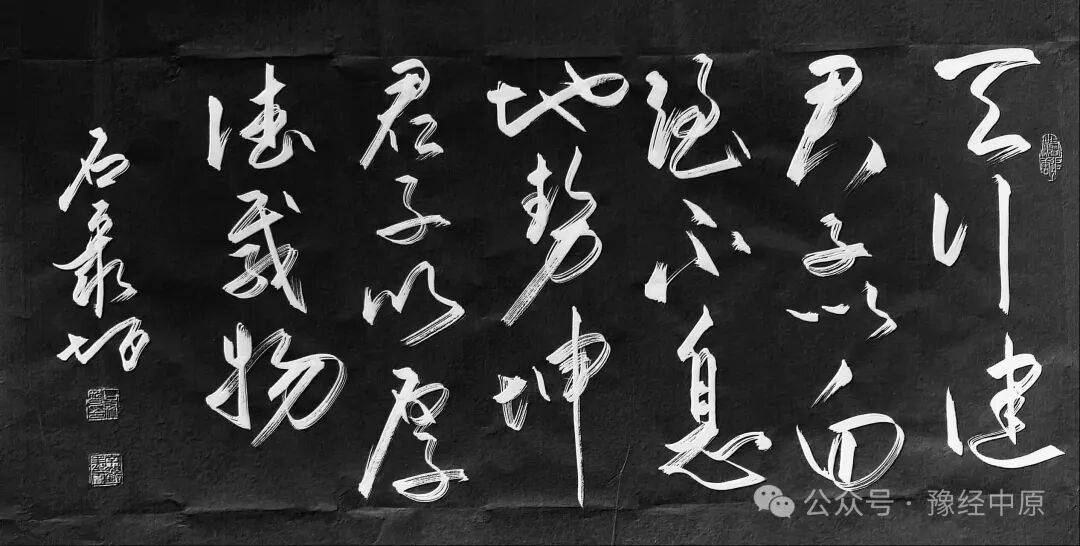 天行健
君子以自
强不息
地势坤
君子以厚
德载物
公众号 · 豫经中原